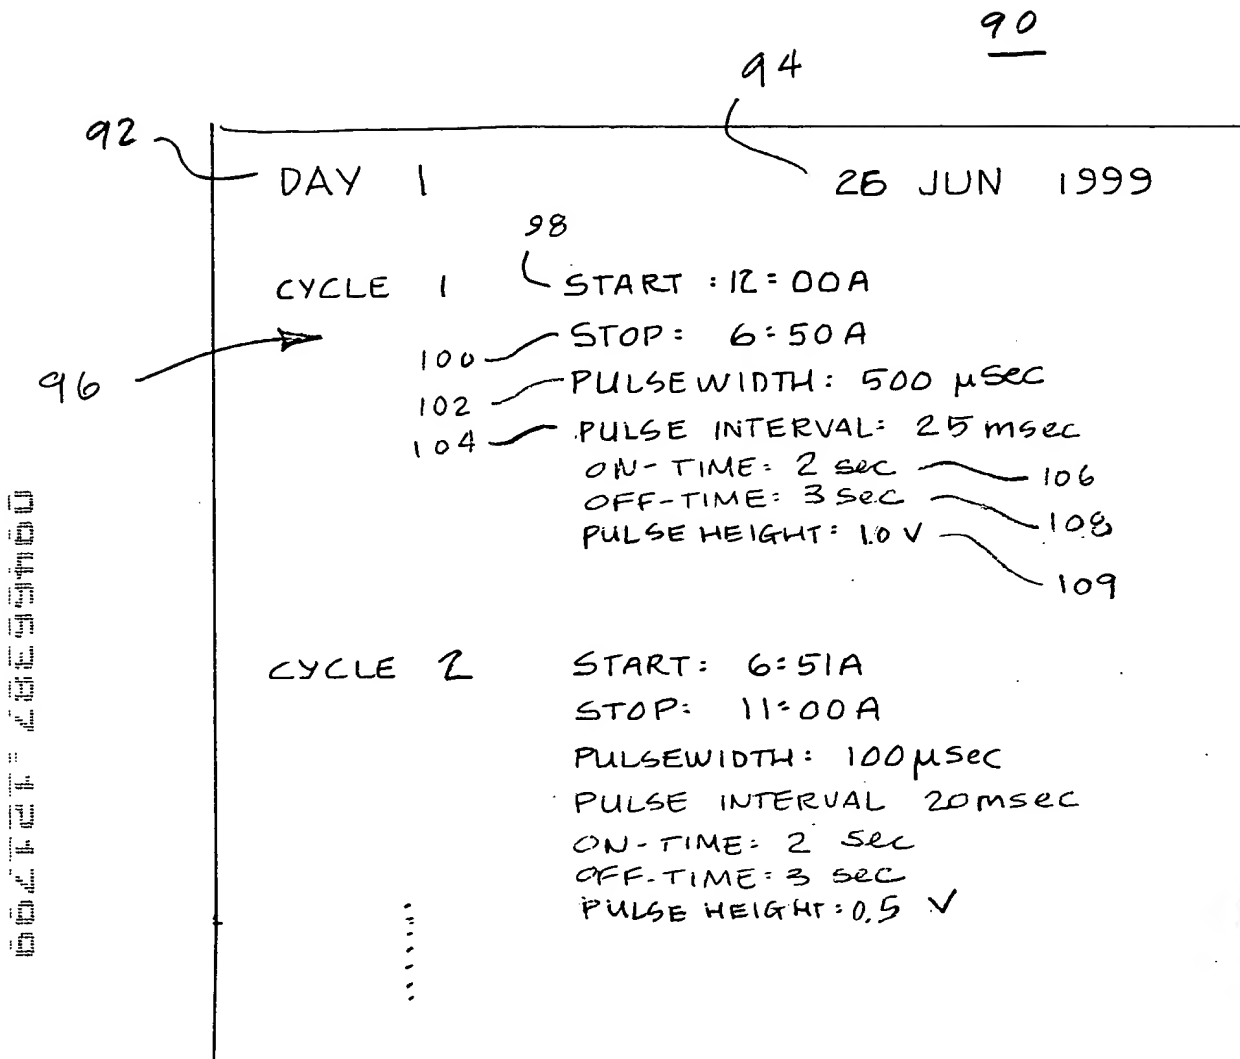 90
94
92
DAY 1 26 JUN 1999
98
CYCLE 1 START : 12:00A
100 STOP: 6:50A
96
102 PULSEWIDTH: 500 µsec
104 PULSE INTERVAL: 25 msec
ON-TIME: 2 sec 106
OFF-TIME: 3 sec 108
PULSE HEIGHT: 1.0 V
109
CYCLE 2 START: 6:51A
STOP: 11:00A
PULSEWIDTH: 100 µsec
PULSE INTERVAL 20msec
ON-TIME: 2 sec
OFF-TIME: 3 sec
PULSE HEIGHT: 0.5 V